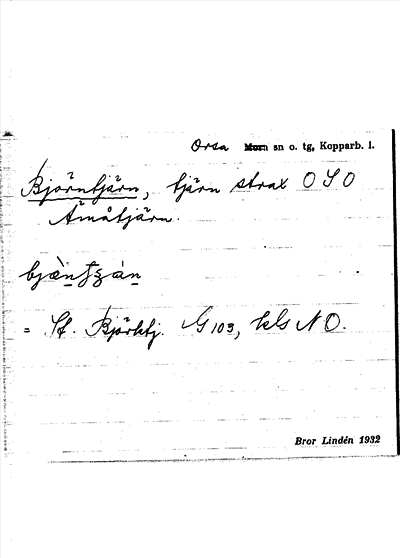 Orsa Mora sn o. tg, Kopparb. l.
Björntjärn, tjärn strax OSO
Åmåtjärn.
= St. Björktj. G 103, kls NO.
Bror Lindén 1932